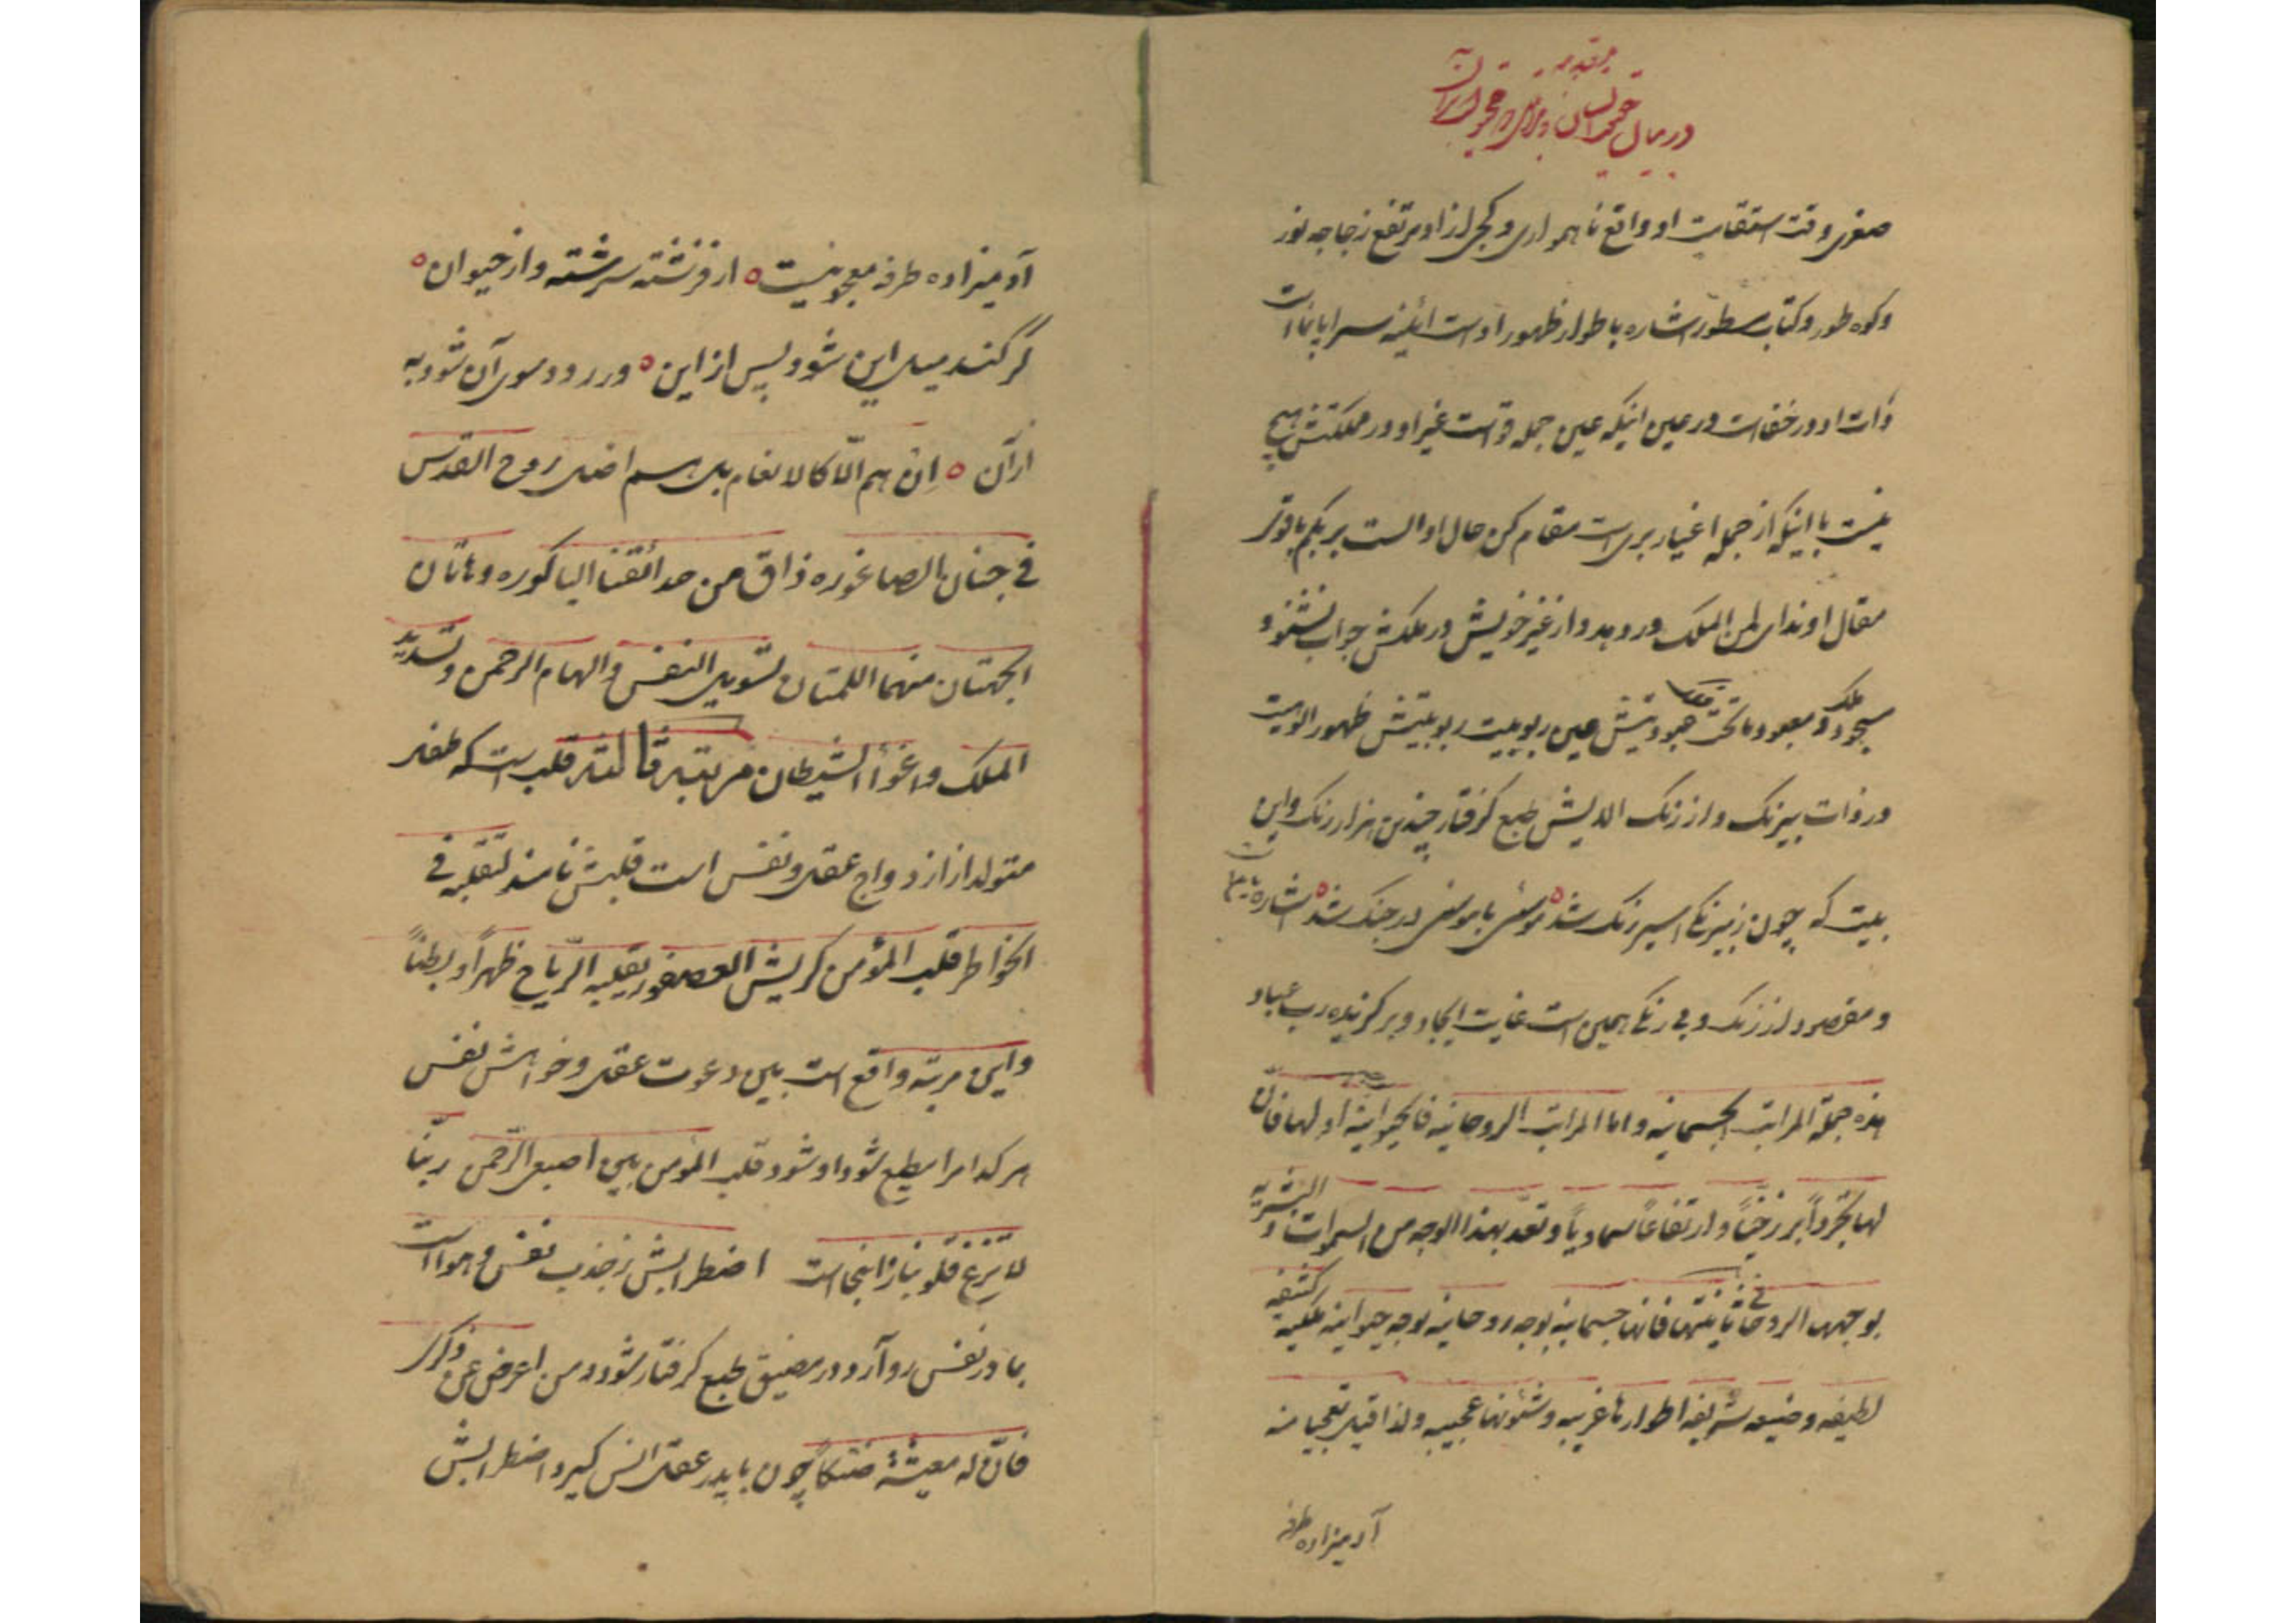 مقدمه
در بیان
صغری وقت استقامت او واقع ناهمواری و کجی از او مرتفع زجاجه نور
و کوه طور و کتاب مسطور اشاره باطوار ظهور اوست آینه سراپا نما است
ذات او در خفاست در عین اینکه عین جمله قواست غیر او در مملکتش هیچ
نیست با اینکه از جمله اغیار بری است مقام کن حال او الست بربکم با قوتر
مقال او ندای لمن الملک در دهد و از غیر خویش در ملکش جواب نشنود
مسجود ملک و معبود ما تحت عبودیتش عین ربوبیت ربوبیتش ظهور الوهیت
در ذات بیرنک و از رنک الایش طبع گرفتار چندین هزار رنک و این
بیت که چون ز بیرنگی اسیر رنک شد ه موسئی با موسئی در جنک شد ه اشاره
و مقصود از رنک و بی رنگی همین است غایت ایجاد و برگزیده رب عباد
هذه جملة المراتب الجسمانیه و اما المراتب الروحانیه فالحیوانیة اولها فان
لها تجرداً برزخیاً و ارتفاعاً سماویاً و تعد بهذا الوجه من السموات و البشریه
بوجهها الروحانی ثانیتها فانها جسمانیه بوجه روحانیه بوجه حیوانیه ملکیه کثیفه
لطیفه وضیعه شریفه اطوارها غریبه و شئونها عجیبه ولذا قیل تعجبا منه
آدمیزاده طرفه
آدمیزاده طرفه معجونیست ه از فرشته سرشته و از حیوان ه
گر کند میل این شود پس از این ه ور رود سوی آن شود به
از آن ه ان هم الّا کالانعام بل هم اضل روح القدس
فی جنان الصاغوره ذاق من حدائقنا الباکوره و هاتان
الجهتان منهما اللمتان تسویل النفس و الهام الرحمن و تسدید
الملک و اغواء الشیطان مرتبه ثالثه قلب است که طفل
متولد از ازدواج عقل و نفس است قلبش نامند لتقلبه فی
الخواطر قلب المؤمن کریش العصفور یقلبه الریاح ظهراً و بطناً
و این مرتبه واقع است بین دعوت عقل و خواهش نفس
هر کدام را مطیع شود او شود قلب المؤمن بین اصبعی الرحمن ربّنا
لا تزغ قلوبنا از اینجاست اضطرابش ز جذب نفس و هوا است
بمادر نفس رو آرد در مضیق طبع گرفتار شود و من اعرض عن ذکری
فانّ له معیشة ضنکاً چون با پدر عقل انس گیرد اضطرابش